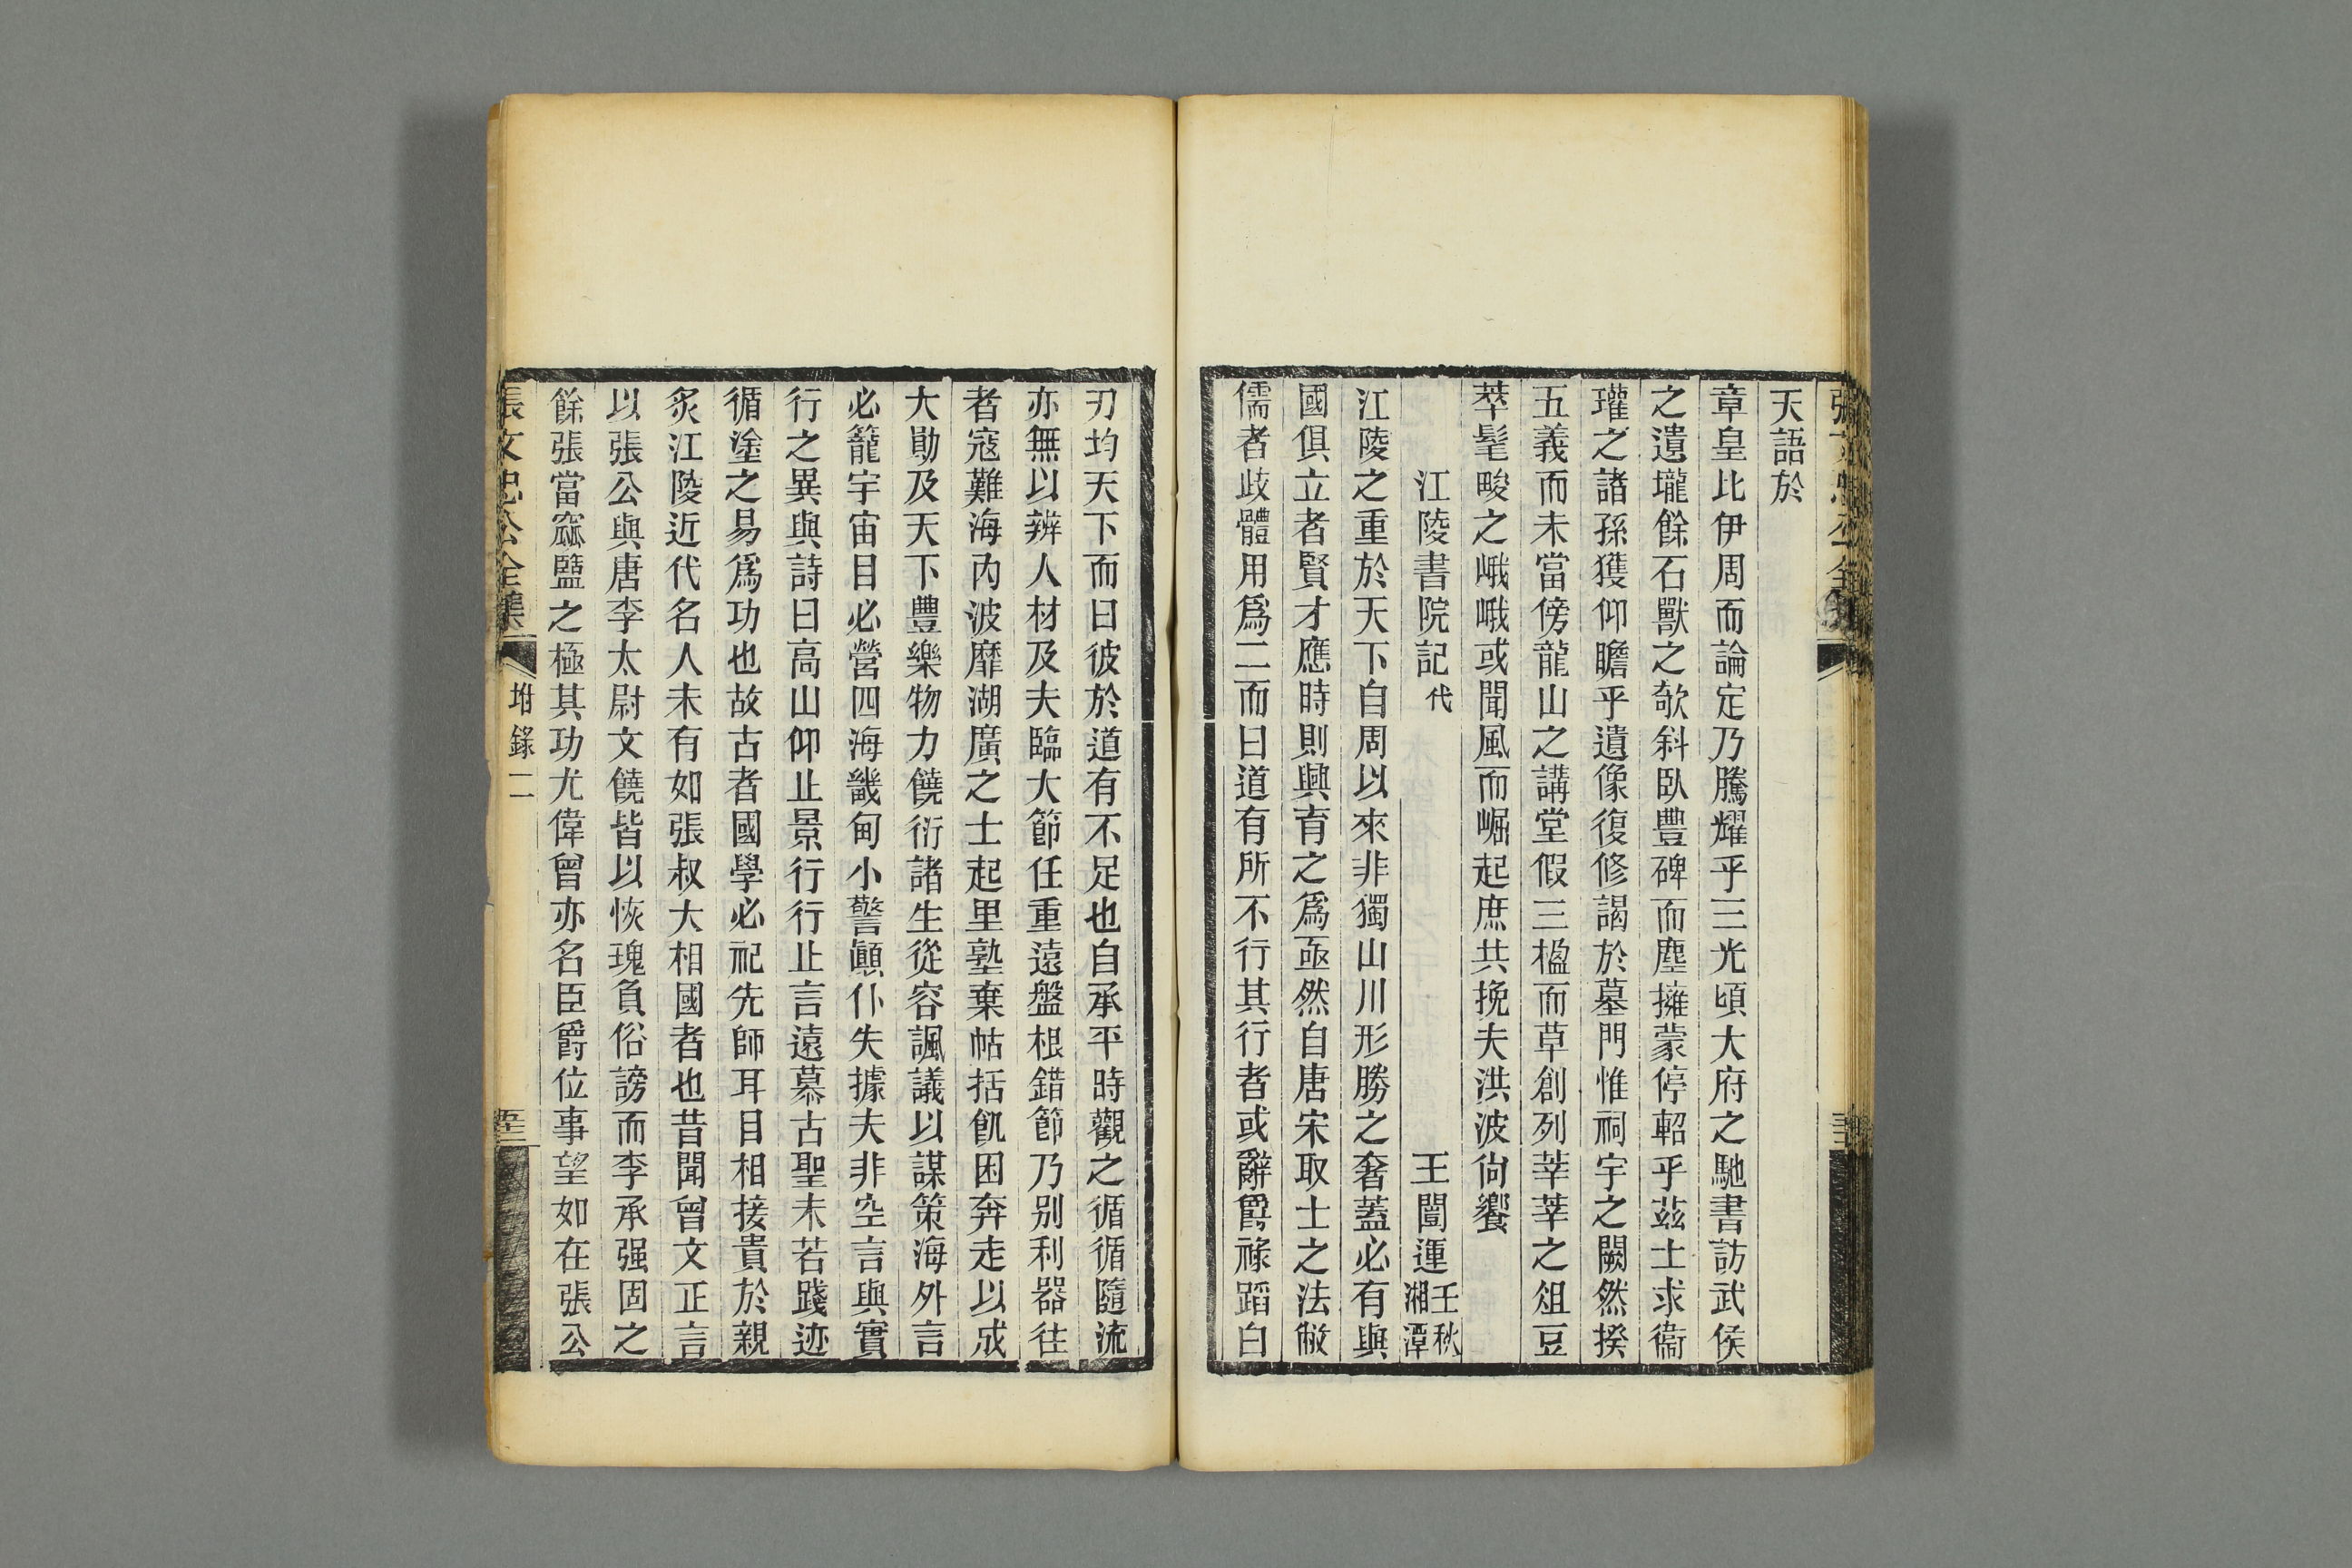 天語於
章皇比伊周而論定乃騰耀乎三光頃大府之馳書訪武侯
之遺壠餘石獸之欹斜臥豐碑而塵擁蒙停軺乎茲土求衞
瓘之諸孫獲仰瞻乎遺像復修謁於墓門惟祠宇之闕然揆
五義而未當傍龍山之講堂假三楹而草創列莘莘之俎豆
萃髦畯之峨峨或聞風而崛起庶共挽夫洪波尙饗
江陵書院記代 王闓運壬秋湘潭
江陵之重於天下自周以來非獨山川形勝之奢蓋必有與
國俱立者賢才應時則興育之爲亟然自唐宋取士之法敝
儒者歧體用爲二而曰道有所不行其行者或辭爵祿蹈白
刃均天下而曰彼於道有不足也自承平時觀之循循隨流
亦無以辨人材及夫臨大節任重遠盤根錯節乃别利器往
者寇難海內波靡湖廣之士起里塾棄帖括飢困奔走以成
大勛及天下豐樂物力饒衍諸生從容諷議以謀策海外言
必籠宇宙目必營四海畿甸小警顚仆失據夫非空言與實
行之異與詩曰高山仰止景行行止言遠慕古聖未若踐迹
循塗之易爲功也故古者國學必祀先師耳目相接貴於親
炙江陵近代名人未有如張叔大相國者也昔聞曾文正言
以張公與唐李太尉文饒皆以恢瑰負俗謗而李承强固之
餘張當窳盬之極其功尤偉曾亦名臣爵位事望如在張公
張文忠公全集 坿錄二